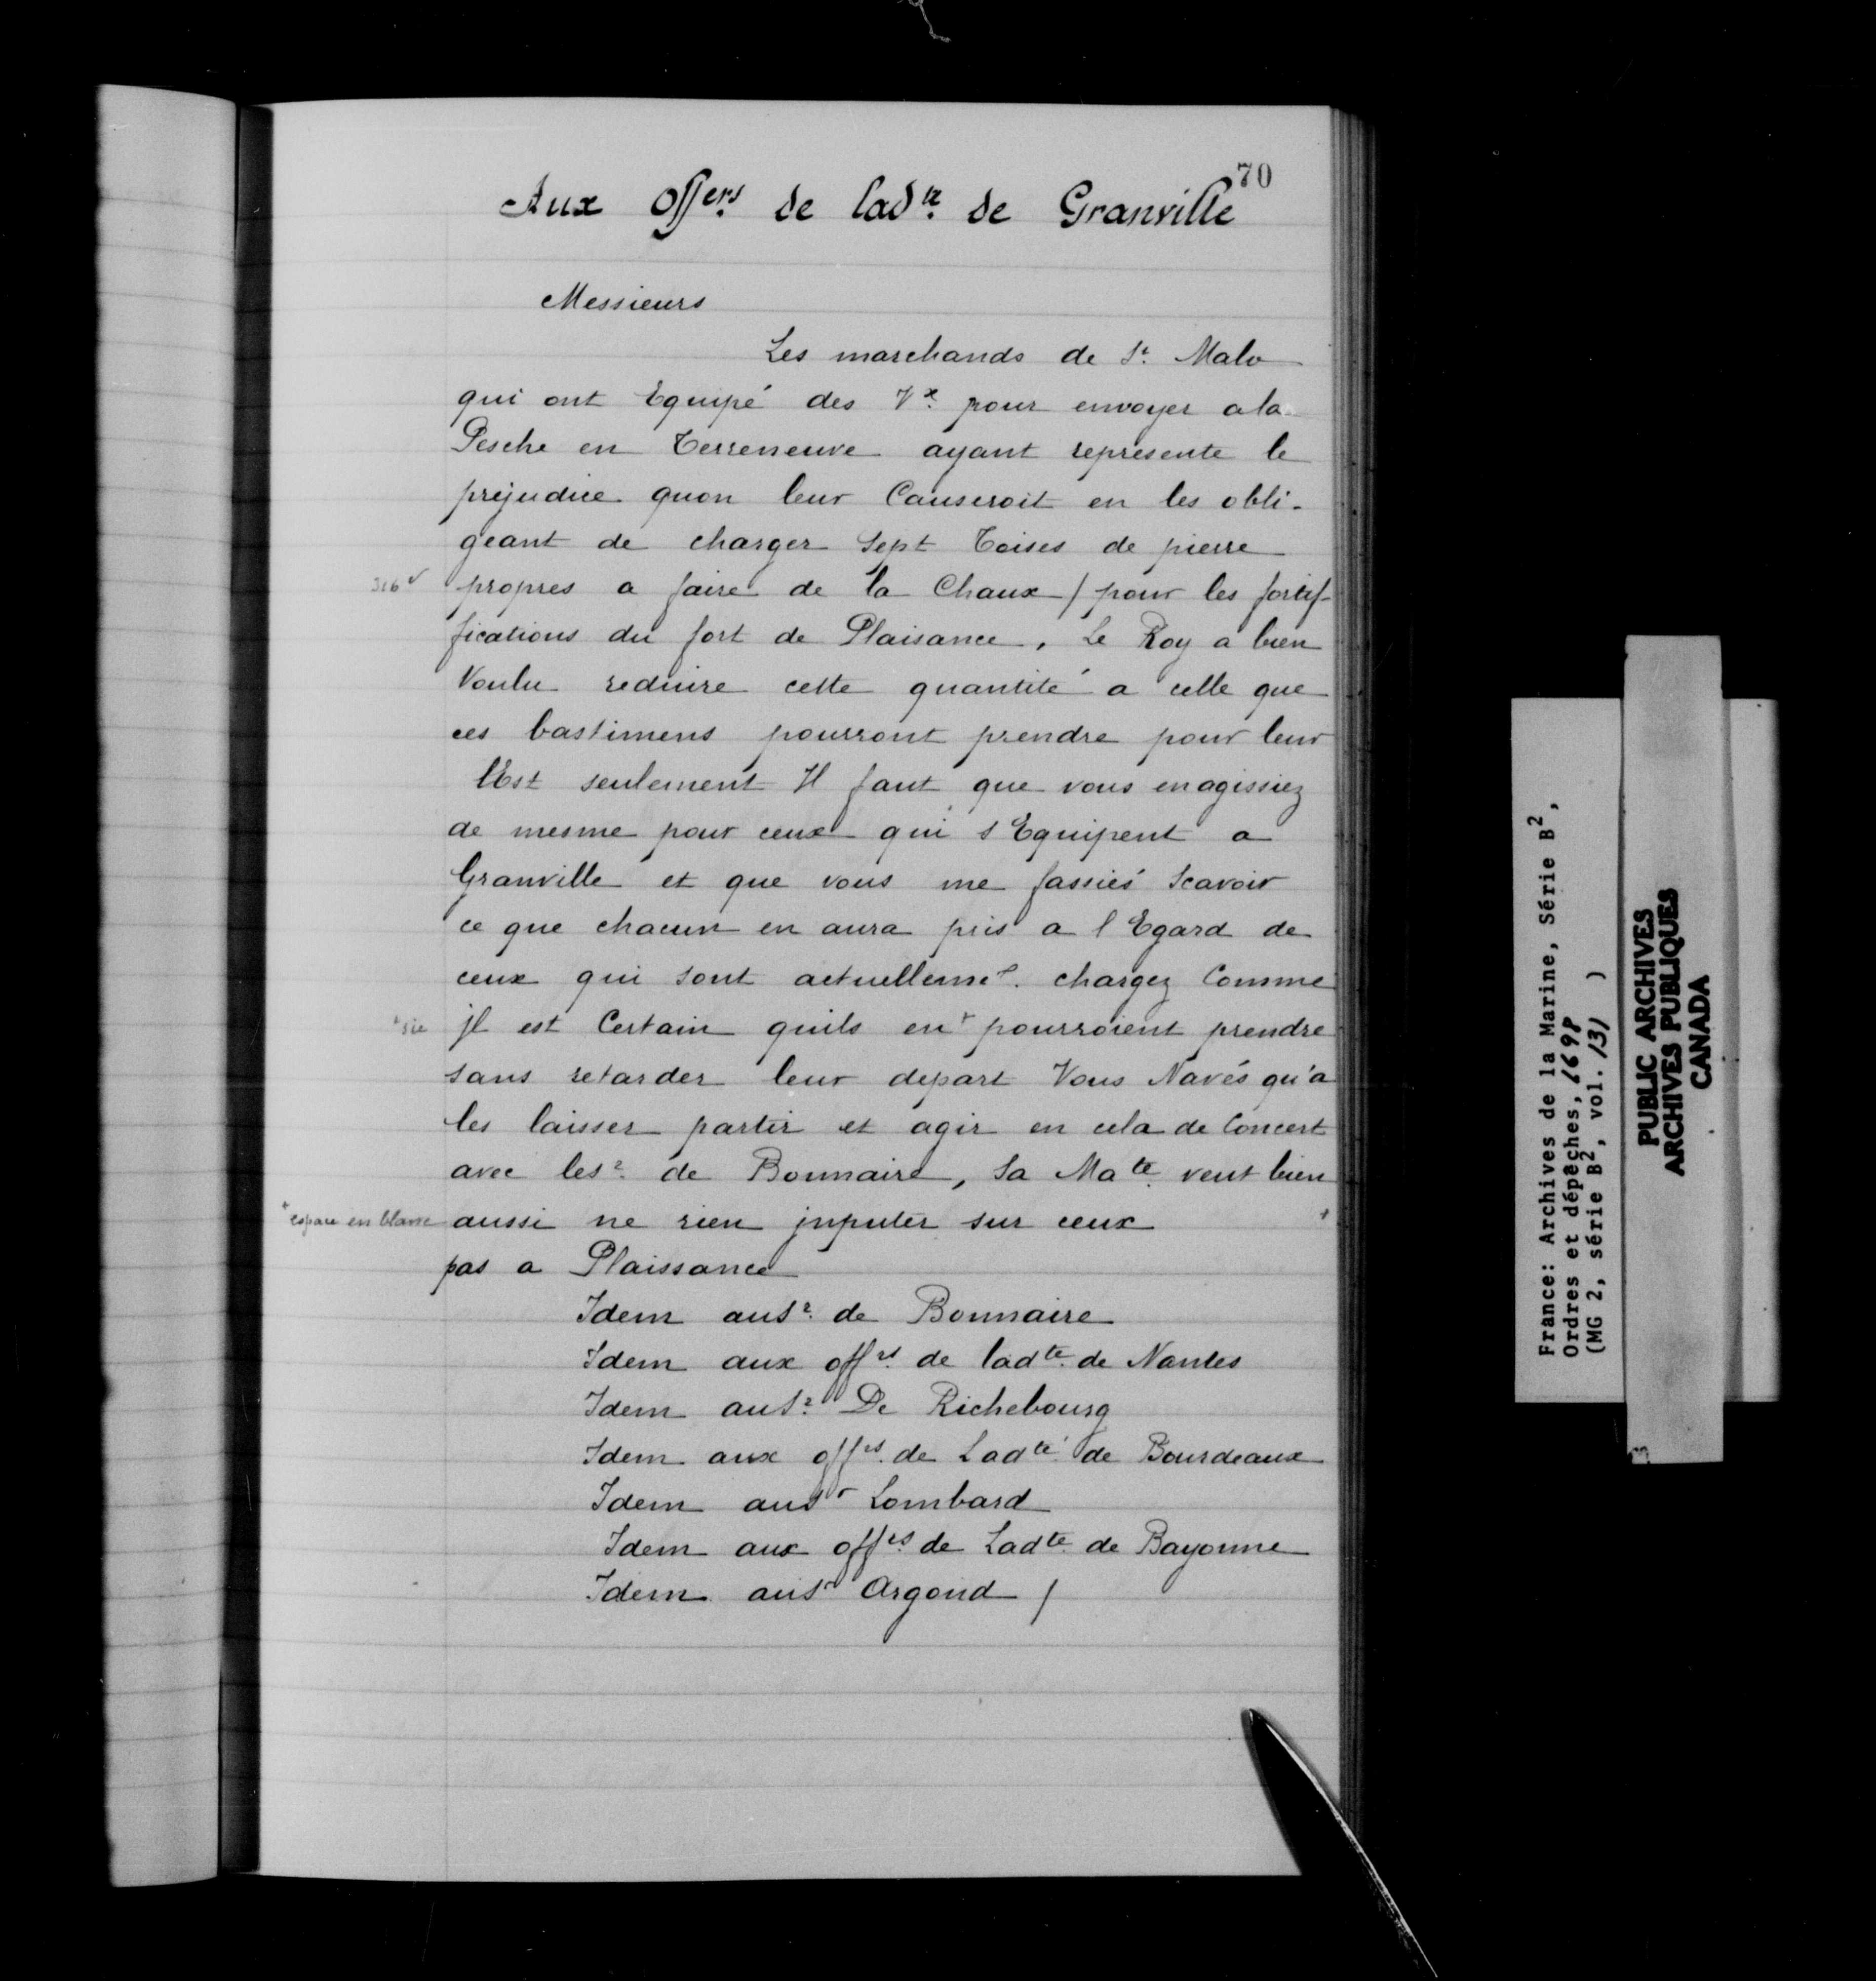 70
Aux Off.ers de lad.te de Granville
Messieurs
Les marchands de St. Malo
qui ont Equipé des Vx. pour envoyer a la
Pesche en Terreneuve ayant represente le
prejudice quon leur Causeroit en les obli-
geant de charger Sept Toises de pierre
316 v propres a faire de la Chaux / pour les fortif-
fications du fort de Plaisance, Le Roy a bien
Voulu reduire cette quantité a celle que
ces bastimens pourront prendre pour leur
lEst seulement Il faut que vous en agissiez
de mesme pour ceux qui s'Equipent a
Granville et que vous me fassiés Scavoir
ce que chacun en aura pris a l'Egard de
ceux qui sont actuellemt. chargez Comme
+ sic jl est Certain quils en + pourroient prendre
sans retarder leur depart Vous Navés qu'a
les laisser partir et agir en cela de Concert
avec lesr. de Bonnaire, Sa Mate. veut bien
+ espace en blanc aussi ne rien jnputer sur ceux +
pas a Plaissance
Idem ausr. de Bonnaire
Idem aux offrs. de ladte. de Nantes
Idem ausr. De Richebourg
Idem aux offrs. de Ladte de Bourdeaux
Idem ausr Lombard
Idem aux offrs. de Ladte. de Bayonne
Idem ausr Argoud /
France: Archives de la Marine, Série B2,
Ordres et dépêches, 1698
(MG 2, série B2, vol. 131 )
PUBLIC ARCHIVES
ARCHIVES PUBLIQUES
CANADA